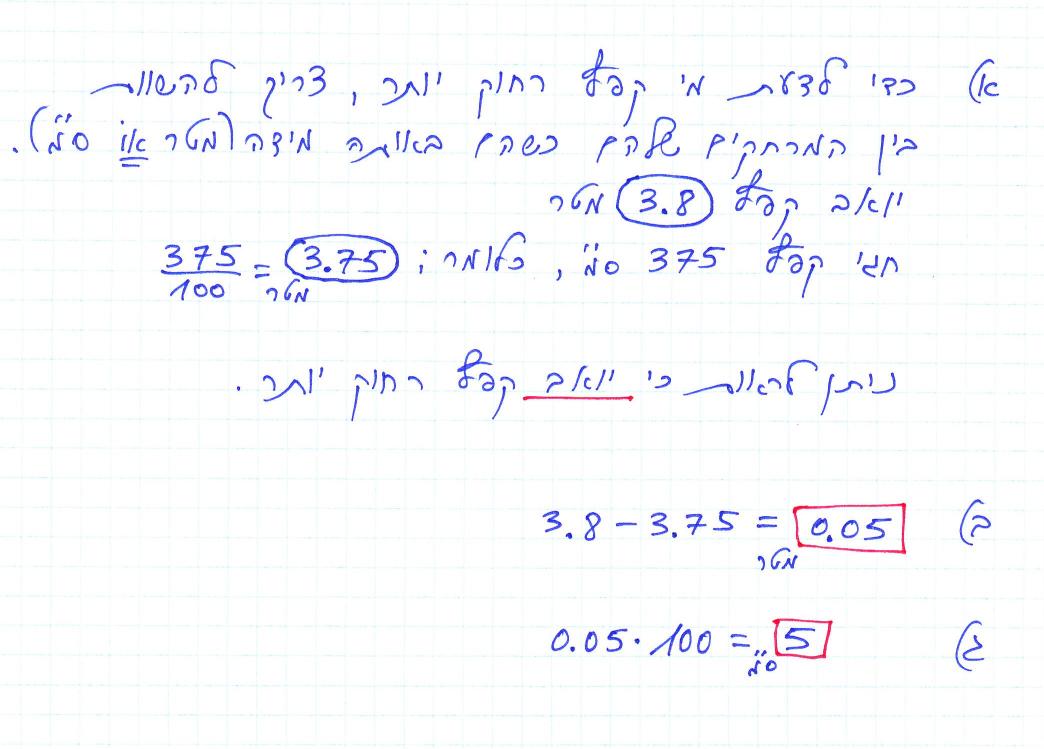 א) כדי לדעת מי קפץ רחוק יותר, צריך להשוות
בין המרחקים שלהם כשהם באותה מידה (מטר או ס"מ).
יואב קפץ 3.8 מטר
חגי קפץ 375 ס"מ, כלומר: 375/100 = 3.75 מטר
ניתן לראות כי יואב קפץ רחוק יותר.
ב) 3.8 - 3.75 = 0.05 מטר
ג) 0.05 · 100 = 5 ס"מ